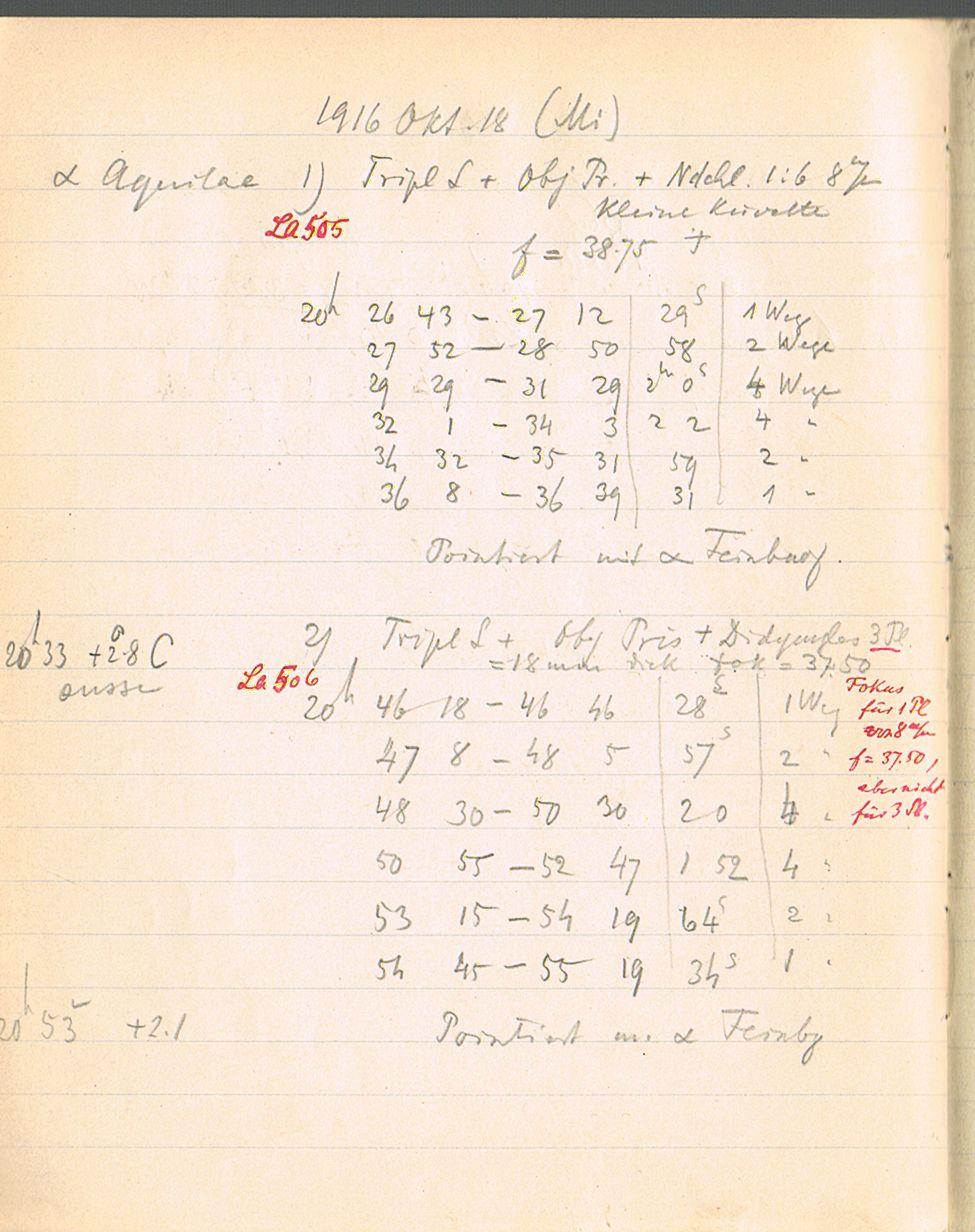 1916 Okt. 18 (Mi)
α Aquilae 1) Tripl S + Obj Pr. + Ndchl. 1:6 8 m/m
La 505 kleine Küvette
f = 38.75
20h 26 43 – 27 12 29s 1 Weg
27 52 – 28 50 58 2 Wege
29 29 – 31 29 2m 0s 4 Wege
32 1 – 34 3 2 2 4 "
34 32 – 35 31 59 2 "
36 8 – 36 39 31 1 "
Pointiert mit α
20h 33 +2°.8 C 2) Tripl S + Obj Pris + 3 Pl.
ausse = 18 m/m dick fok = 37.50
La 506
20h 46 18 – 46 46 28s 1 Weg
47 8 – 48 5 57s 2 "
48 30 – 50 30 2 0 4 "
50 55 – 52 47 1 52 4 "
53 15 – 54 19 64s 2 "
54 45 – 55 19 34s 1 "
Fokus
für 1 Pl
von 8 m/m
f = 37.50,
aber nicht
für 3 Pl.
20h 53 +2.1 Pointiert m. α